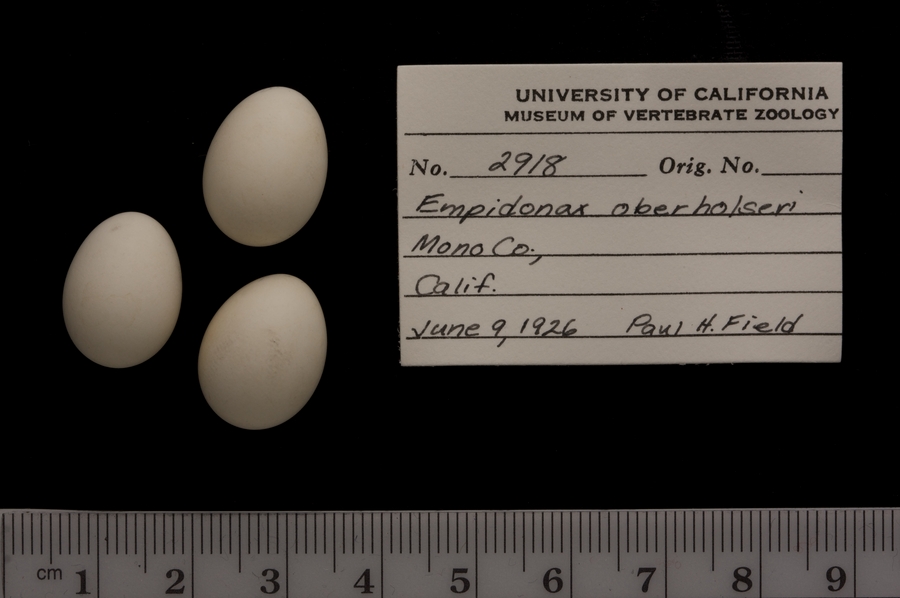 UNIVERSITY OF CALIFORNIA
MUSEUM OF VERTEBRATE ZOOLOGY
No. 2918 Orig. No.
Empidonax oberholseri
Mono Co.,
Calif.
June 9, 1926 Paul H. Field
cm 1 2 3 4 5 6 7 8 9